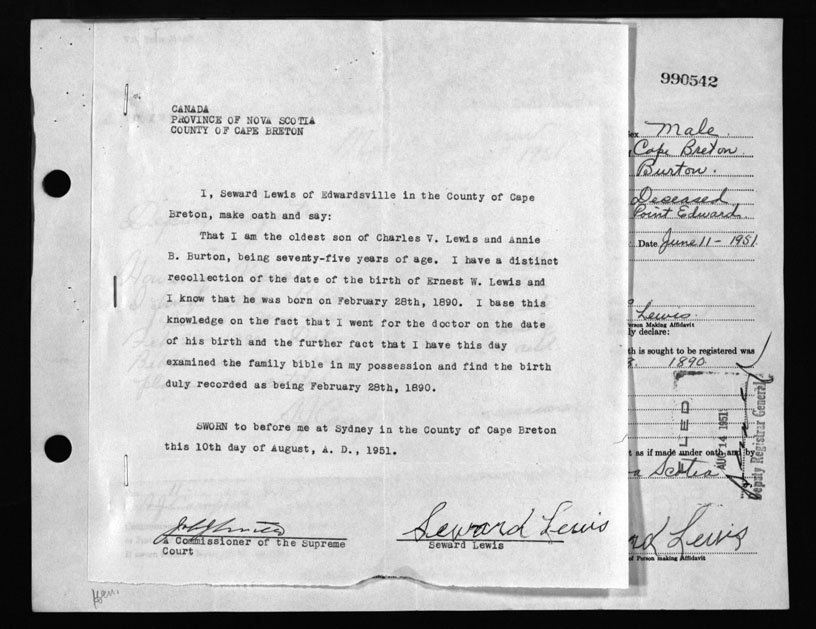 CANADA
PROVINCE OF NOVA SCOTIA
COUNTY OF CAPE BRETON
I, Seward Lewis of Edwardsville in the County of Cape
Breton, make oath and say:
That I am the oldest son of Charles V. Lewis and Annie
B. Burton, being seventy-five years of age. I have a distinct
recollection of the date of the birth of Ernest W. Lewis and
I know that he was born on February 28th, 1890. I base this
knowledge on the fact that I went for the doctor on the date
of his birth and the further fact that I have this day
examined the family bible in my possession and find the birth
duly recorded as being February 28th, 1890.
SWORN to before me at Sydney in the County of Cape Breton
this 10th day of August, A. D., 1951.
A Commissioner of the Supreme
Court
Seward Lewis
Seward Lewis
990542
Male
Cape Breton
Burton.
Deceased
Point Edward
Date June 11 - 1951
Lewis.
Person Making Affidavit
ly declare:
th is sought to be registered was
1890
t as if made under oath and by
a Scotia
AUG 14 1951
Deputy Registrar General
rd Lewis
of Person making Affidavit